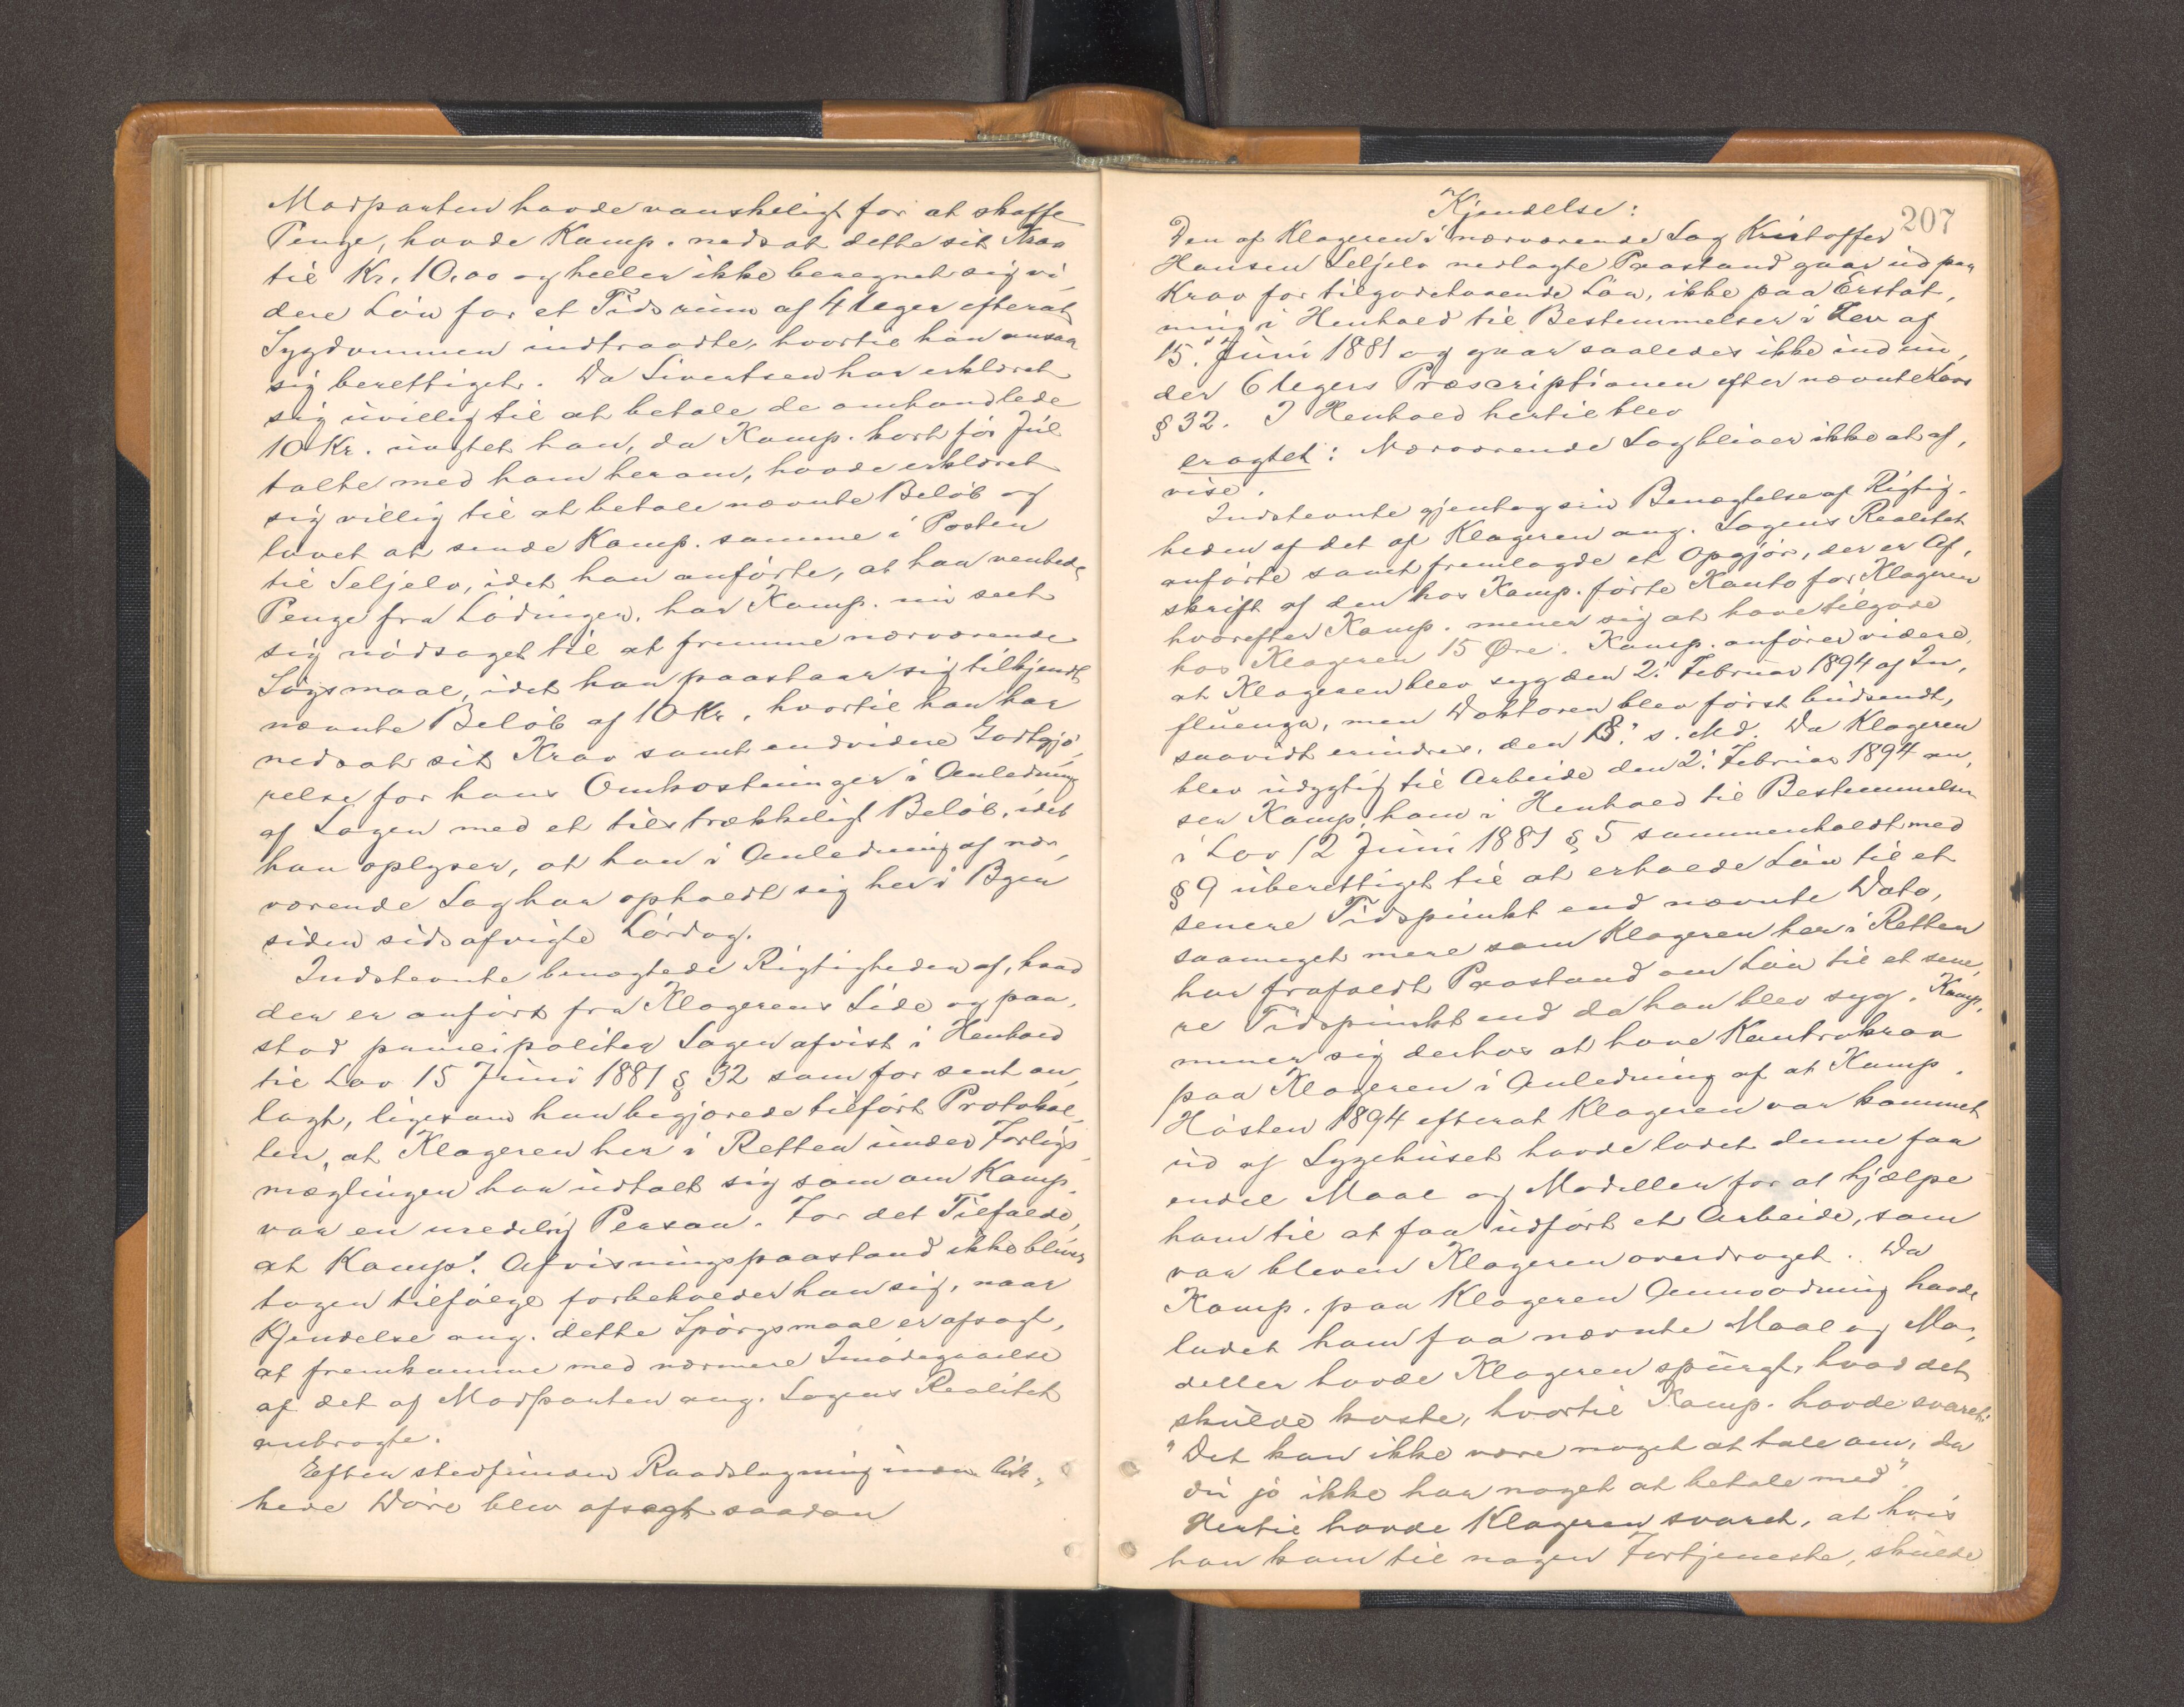 Modparten havde vanskeligt for at skaffe
Penge, havde Komp. nedsat dette sit Krav
til Kr. 10,00 og heller ikke beregnet sig vi,
dere Løn for et Tidsrum af 4 Uger efterat
Sygdommen indtraadte, hvortil han ansaa
sig berettiget. Da Sivertsen har erklæret
sig uvillig til at betale de omhandlede
10 Kr. uagtet han, da Komp. kort før Jul
talte med ham herom, havde erklæret
sig villig til at betale nævnte Beløb og
lovet at sende Komp. samme i Posten
til Seljelv, idet han anførte, at han ventede
Penge fra Lødingen, har Komp. nu seet
sig nødsaget til at fremme nærværende
Søgsmaal, idet han paastaar sig tilkjendt
nævnte Beløb af 10 Kr., hvortil han har
nedsat sit Krav samt endvidere Godtgjø,
relse for hans Omkostninger i Anledning
af Sagen med et tilstrækkeligt Beløb, idet
han oplyser, at han i Anledning af nær,
værende Sag har opholdt sig her i Byen
siden sidsafvigte Lørdag.
Indstevnte benægtede Rigtigheden af, hvad
der er anført fra Klagerens Side og paa,
stod principaliter Sagen afvist i Henhold
til Lov 15 Juni 1881 § 32 som for sent an,
lagt, ligesom han begjærede tilført Protokol,
len, at Klageren her i Retten under Forligs,
mæglingen har udtalt sig som om Komp.
var en uredelig Person. For det Tilfælde,
at Komp's. Afvisningspaastand ikke bliver
tagen tilfølge forbeholder han sig, naar
Kjendelse ang. dette Spørgsmaal er afsagt,
at fremkomme med nærmere Imødegaaelse
af det af Modparten ang. Sagens Realitet
anbragte.
Efter stedfunden Raadslagning inden luk,
kede Døre blev afsagt saadan
207
Kjendelse:
Den af Klageren i nærværende Sag Kristoffer
Hansen Seljelv nedlagte Paastand gaar ud paa
Krav for tilgodehavende Løn, ikke paa Erstat,
ning i Henhold til Bestemmelser i Lov af
15. Juni 1881 og gaar saaledes ikke ind un,
der 6 Ugers Præscriptionen efter nævnte Lovs
§ 32. I Henhold hertil blev
eragtet: Nærværende Sag bliver ikke at af,
vise.
Indstevnte gjentog sin Benægtelse af Rigtig,
heden af det af Klageren ang. Sagens Realitet
anførte samt fremlagde et Opgjør, der er Af,
skrift af den hos Komp. førte Konto for Klageren
hvorefter Komp. mener sig at have tilgode
hos Klageren 15 Øre. Komp. anfører videre,
at Klageren blev syg den 2. Februar 1894 af In,
fluenza, men Doktoren blev først budsendt,
saavidt erindres, den 13. s. Md. Da Klageren
blev udygtig til Arbeide den 2. Februar 1894 an,
ser Komp. ham i Henhold til Bestemmelsen
i Lov 12 Juni 1881 § 5 sammenholdt med
§ 9 uberettiget til at erholde Løn til et
senere Tidspunkt end nævnte Dato,
saameget mere som Klageren her i Retten
har frafaldt Paastand om Løn til et sene,
re Tidspunkt end da han blev syg. Komp.
mener sig derhos at have Kontrakrav
paa Klageren i Anledning af at Komp.
Høsten 1894 efterat Klageren var kommet
ud af Sygehuset havde ladet denne faa
endel Maal og Modeller for at hjælpe
ham til at faa udført et Arbeide, som
var bleven Klageren overdraget. Da
Komp. paa Klageren Anmodning havde
ladet ham faa nævnte Maal og Mo,
deller havde Klageren spurgt, hvad det
skulde koste, hvortil Komp. havde svaret:
"Det kan ikke være noget at tale om, da
du jo ikke har noget at betale med".
Hertil havde Klageren svaret, at hvis
han kom til nogen Fortjeneste, skulde